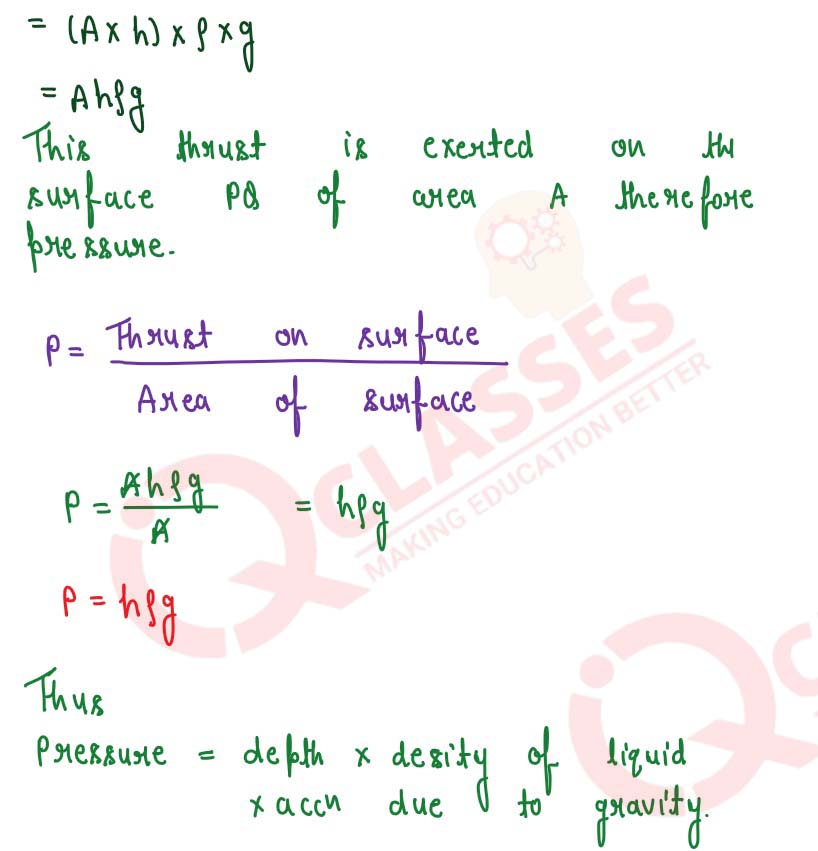 = (A × h) × ρ × g
= Ahρg
This thrust is exerted on the
surface PQ of area A therefore
pressure.
P = Thrust on surface
Area of surface
P = Ahρg = hρg
A
P = hρg
Thus
Pressure = depth × desity of liquid
× accn due to gravity.
QCLASSES
MAKING EDUCATION BETTER